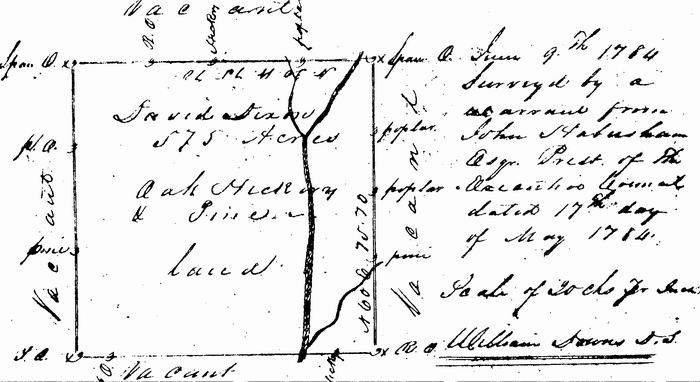 Vacant
R. O.
Span O. x
x Span O.
June 9.th 1784
Surveyd by a
warrant from
John Habersham
Esqr. Prest. of the
Executive Council
dated 17th day
of May 1784.
David Dixon
575 Acres
Oak Hickory
& Pine
land
poplar
poplar
pine
pine
Vacant
Vacant
N 60 E 75.70
Scale of 20 chs pr Inch
William Downs D. S.
x R. O.
Vacant